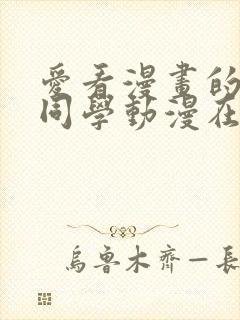 愛看漫畫的
同學動漫在
烏魯木齊—長